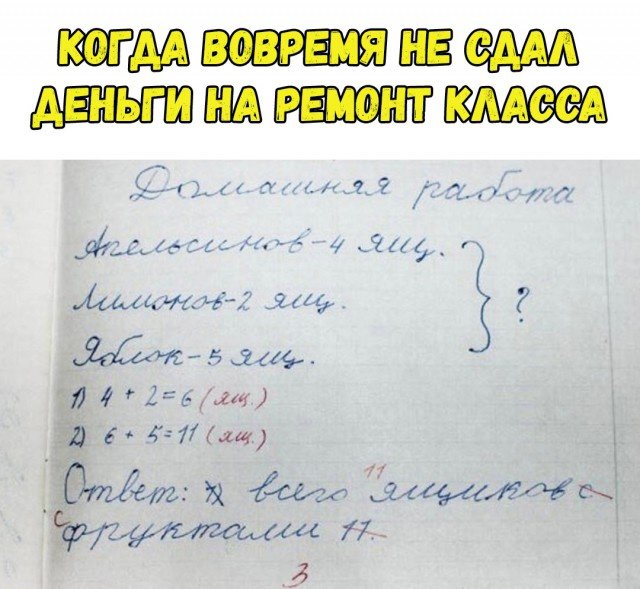 КОГДА ВОВРЕМЯ НЕ СДАЛ
ДЕНЬГИ НА РЕМОНТ КЛАССА
Домашняя работа
Апельсинов-4 ящ.
Лимонов-2 ящ.
?
Яблок-5 ящ.
1) 4 + 2=6 (ящ.)
2) 6 + 5=11 (ящ.)
11
Ответ: всего ящиков с
с фруктами 11.
3